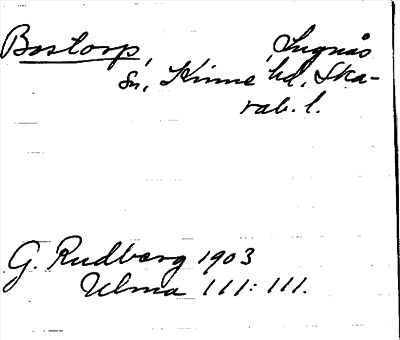 Bostorp, Lugnås
sn, Kinne hd, Ska-
rab. l.
G. Rudberg 1903
Ulma 111:111.